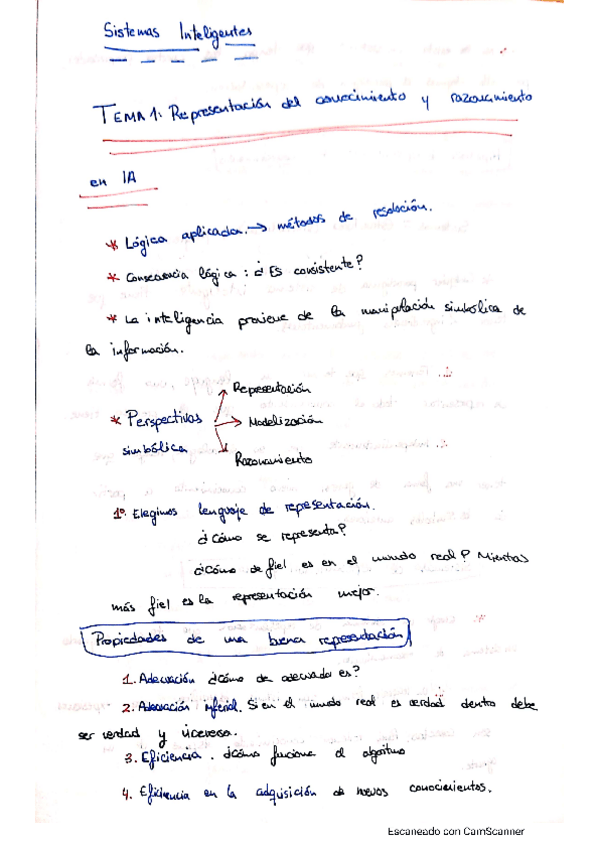 Sistemas Inteligentes
TEMA 1: Representación del conocimiento y razonamiento
en IA
* Lógica aplicada. → métodos de resolución.
* Consecuencia lógica : ¿Es consistente?
* La inteligencia proviene de la manipulación simbólica de
la información.
Representación
* Perspectivas Modelización
simbólica
Razonamiento
1º. Elegimos lenguaje de representación.
¿Cómo se representa?
¿Cómo de fiel es en el mundo real? Mientas
más fiel es la representación mejor.
Propiedades de una buena representación
1. Adecuación ¿Cómo de adecuado es?
2. Adecuación inferial. Si en el mundo real es verdad dentro debe
ser verdad y viceversa.
3. Eficiencia. ¿Cómo funciona el algoritmo
4. Eficiencia en la adquisición de nuevos conocimientos.
Escaneado con CamScanner